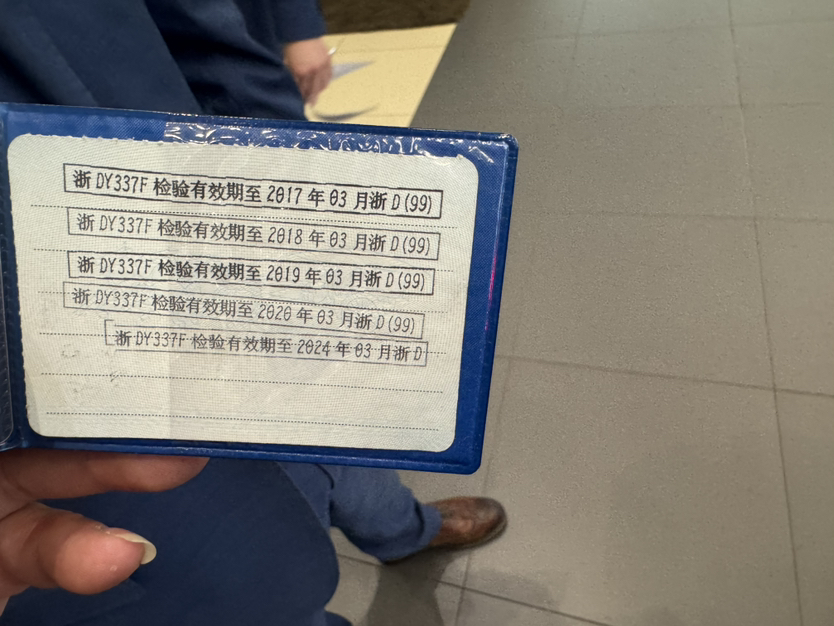 浙 DY337F 检验有效期至 2017 年 03 月浙 D (99)
浙 DY337F 检验有效期至 2018 年 03 月浙 D (99)
浙 DY337F 检验有效期至 2019 年 03 月浙 D (99)
浙 DY337F 检验有效期至 2020 年 03 月浙 D (99)
浙 DY337F 检验有效期至 2024 年 03 月浙 D